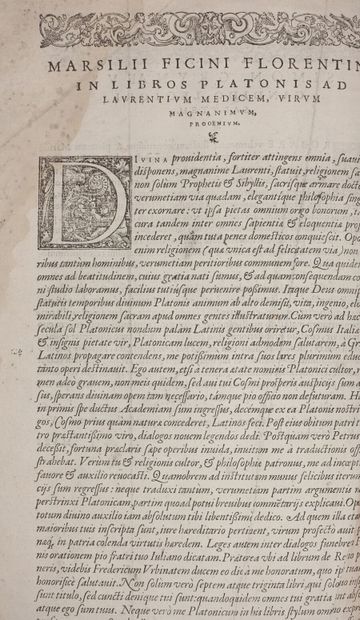 MARSILII FICINI FLORENTIN
IN LIBROS PLATONIS AD
LAVRENTIVM MEDICEM, VIRVM
MAGNANIMVM,
PROOEMIVM.
DIVINA prouidentia, fortiter attingens omnia, suauit
disponens, magnanime Laurenti, statuit religionem sa
non solùm Prophetis & Sibyllis, sacrisque armare doct
verumetiam via quadam, elegantique philosophia sing
ter exornare: vt ipsa pietas omnium origo bonorum,
cura tandem inter omnes sapientia & eloquentia prof
incederet, quàm tuta penes domesticos conquiescit. Opo
enim religionem (quæ vnica est ad felicitatem via) non
ribus tantùm hominibus, verumetiam peritioribus communem fore. Qua quidem
omnes ad beatitudinem, cuius gratia nati sumus, & ad quam consequendam co
ni studio laboramus, facilius tutiusque peruenire possimus. Itaque Deus omnip
statutis temporibus diuinum Platonis animum ab alto demisit, vita, ingenio, elo
mirabili, religionem sacram apud omnes gentes illustraturum. Cùm verò ad hæc
secula sol Platonicus nondum palàm Latinis gentibus oriretur, Cosmus Italiæ
& insignis pietate vir, Platonicam lucem, religioni admodum salutarem, à Gr
Latinos propagare contendens, me potissimùm intra suos lares plurimùm educ
tanto operi destinauit. Ego autem, etsi à tenera ætate nominis Platonici cultor, r
men adeo grauem, non meis quidem, sed aui tui Cosmi prosperis auspicijs sum a
sus, sperans diuinam opem tam necessario, támque pio officio non defuturam. H
in primis spe ductus Academiam sum ingressus, decémque ex ea Platonis nostri
gos, Cosmo prius quàm naturæ concederet, Latinos feci. Post eius obitum patri t
tro præstantissimo viro, dialogos nouem legendos dedi. Postquam verò Petrus
decessit, fortuna præclaris sæpe operibus inuida, inuitum me à traductionis off
strahebat. Verùm tu & religionis cultor, & philosophiæ patronus, me ad incept
fauore & auxilio reuocasti. Quamobrem ad institutum munus felicibus iterum
cijs sum regressus: neque traduxi tantùm, verumetiam partim argumentis m
perstrinxi Platonicam, partim quoad potui breuibus commentarijs explicaui. Op
totum diuino auxilio iam absolutum tibi libentissimè dedico. Ad quem illa eti
maioribus tuis inscripta sunt, iure hæreditario pertinent, virum profectò auit
naq; in patria colenda virtutum hæredem. Leges autem inter dialogos funebre
nis orationem pio fratri tuo Iuliano dicatam. Præterea vbi ad librum de Regno p
neris, videbis Fredericum Vrbinatem ducem eo die à me honoratum, quo ip
honorificè salutauit. Non solùm verò septem atque triginta libri, qui solùm ins
sunt titulo, sed cuncti denique tui sunt: quandoquidem omnes tui gratia sunt abs
atque ego sum tuus. Neque verò me Platonicum in his libris stylum omnino expr